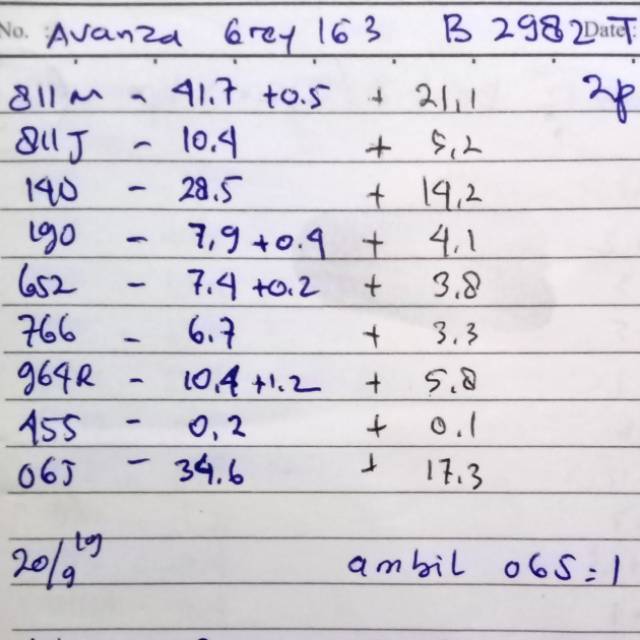 No. : Avanza Grey 163 B 2982 T Date :
811M - 41.7 +0.5 + 21,1 2p
811J - 10.4 + 5,2
140 - 28.5 + 14,2
190 - 7,9 +0.4 + 4,1
652 - 7.4 +0.2 + 3.8
766 - 6.7 + 3.3
964R - 10,4 +1.2 + 5,8
455 - 0,2 + 0.1
065 - 34.6 + 17.3
20/9 19 ambil 065 = 1